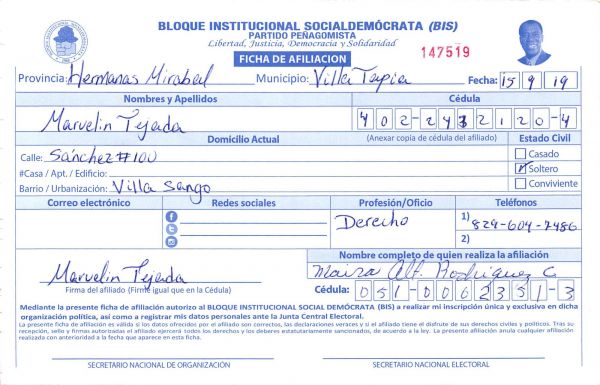 BLOQUE INSTITUCIONAL SOCIALDEMÓCRATA (BIS)
PARTIDO PEÑAGOMISTA
Libertad, Justicia, Democracia y Solidaridad
147519
FICHA DE AFILIACION
Provincia: Hermanas Mirabal Municipio: Villa Tapia Fecha: 15 9 19
Nombres y Apellidos Cédula
Marvelin Tejada 402-2432120-4
Domicilio Actual (Anexar copia de cédula del afiliado) Estado Civil
Calle: Sánchez #100 Casado
#Casa / Apt. / Edificio: Soltero
Barrio / Urbanización: Villa Sango Conviviente
Correo electrónico Redes sociales Profesión/Oficio Teléfonos
Derecho 1) 829-604-7486
2)
Nombre completo de quien realiza la afiliación
Marvelin Tejada Maira Alt. Rodriguez C.
Firma del afiliado (Firme igual que en la Cédula) Cédula: 051-0062351-3
Mediante la presente ficha de afiliación autorizo al BLOQUE INSTITUCIONAL SOCIAL DEMÓCRATA (BIS) a realizar mi inscripción única y exclusiva en dicha
organización política, así como a registrar mis datos personales ante la Junta Central Electoral.
La presente ficha de afiliación es válida si los datos ofrecidos por el afiliado son correctos, las declaraciones veraces y si el afiliado tiene el disfrute de sus derechos civiles y políticos. Tras su
recepción, sello y firmas autorizadas el afiliado ejercerá todos los derechos y los deberes estatutariamente sancionados, de acuerdo a la ley. La presente afiliación anula cualquier afiliación
realizada con anterioridad a la fecha que aparece en esta ficha.
SECRETARIO NACIONAL DE ORGANIZACIÓN SECRETARIO NACIONAL ELECTORAL